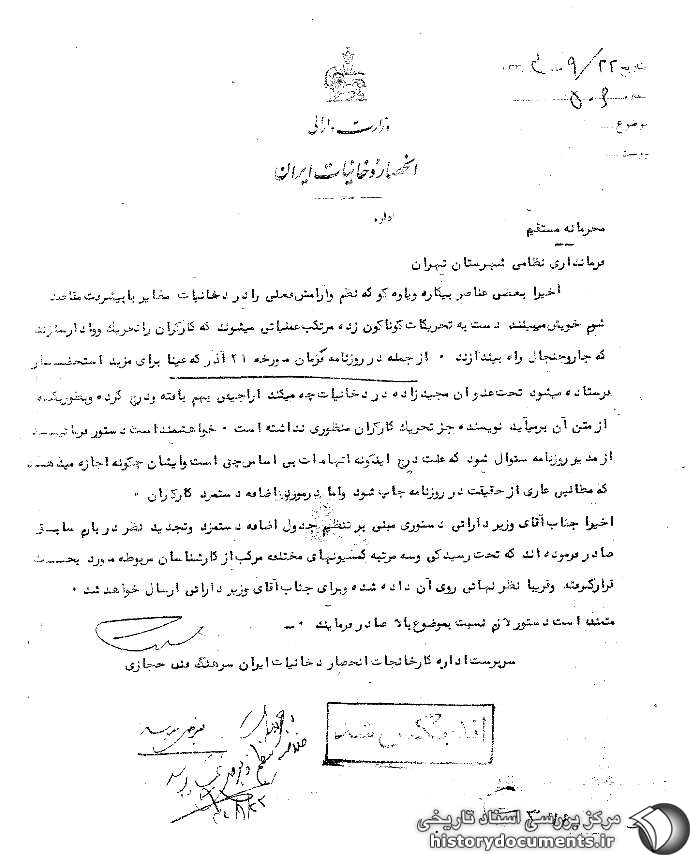 تاریخ ۹/۲۲
شماره
موضوع
پیوست
وزارت دارائی
انحصار دخانیات ایران
اداره
محرمانه مستقیم
فرمانداری نظامی شهرستان تهران
اخیرا بعضی عناصر بیکاره ویاوه گو که نظم وآرامش فعلی را در دخانیات مغایر با پیشرفت مقاصد
شوم خویش میبینند دست به تحریکات گوناگون زده مرتکب عملیاتی میشوند که کارگران را تحریک ووادار سازند
که جاروجنجال راه بیندازند ۰ از جمله در روزنامه فرمان مورخه ۲۱ آذر که عینا برای مزید استحضار
فرستاده میشود تحت عنوان مجید زاده در دخانیات چه میکند اراجیفی بهم بافته ودرج کرده وبطوریکه
از متن آن برمیآید نویسنده جز تحریک کارگران منظوری نداشته است ۰ خواهشمند است دستور فرمائید
از مدیر روزنامه سئوال شود که علت درج اینگونه اتهامات بی اساس چی است وایشان چگونه اجازه میدهند
که مطالبی عاری از حقیقت در روزنامه چاپ شود واما درمورد اضافه دستمزد کارگران ۰
اخیرا جناب آقای وزیر دارائی دستوری مبنی بر تنظیم جدول اضافه دستمزد وتجدید نظر در
صادر فرموده اند که تحت رسیدگی وسه مرتبه کمسیونهای مختلفه مرکب از کارشناسان مربوطه مورد بحث
قرارگرفته وتقریبا نظر نهائی روی آن داده شده وبرای جناب آقای وزیر دارائی ارسال خواهد شد ۰
متمنی است دستور لازم نسبت بموضوع بالا صادر فرمایند ۰
سرپرست اداره کارخانجات انحصار دخانیات ایران سرهنگ حجازی
شد
مرکز بررسی اسناد تاریخی
historydocuments.ir